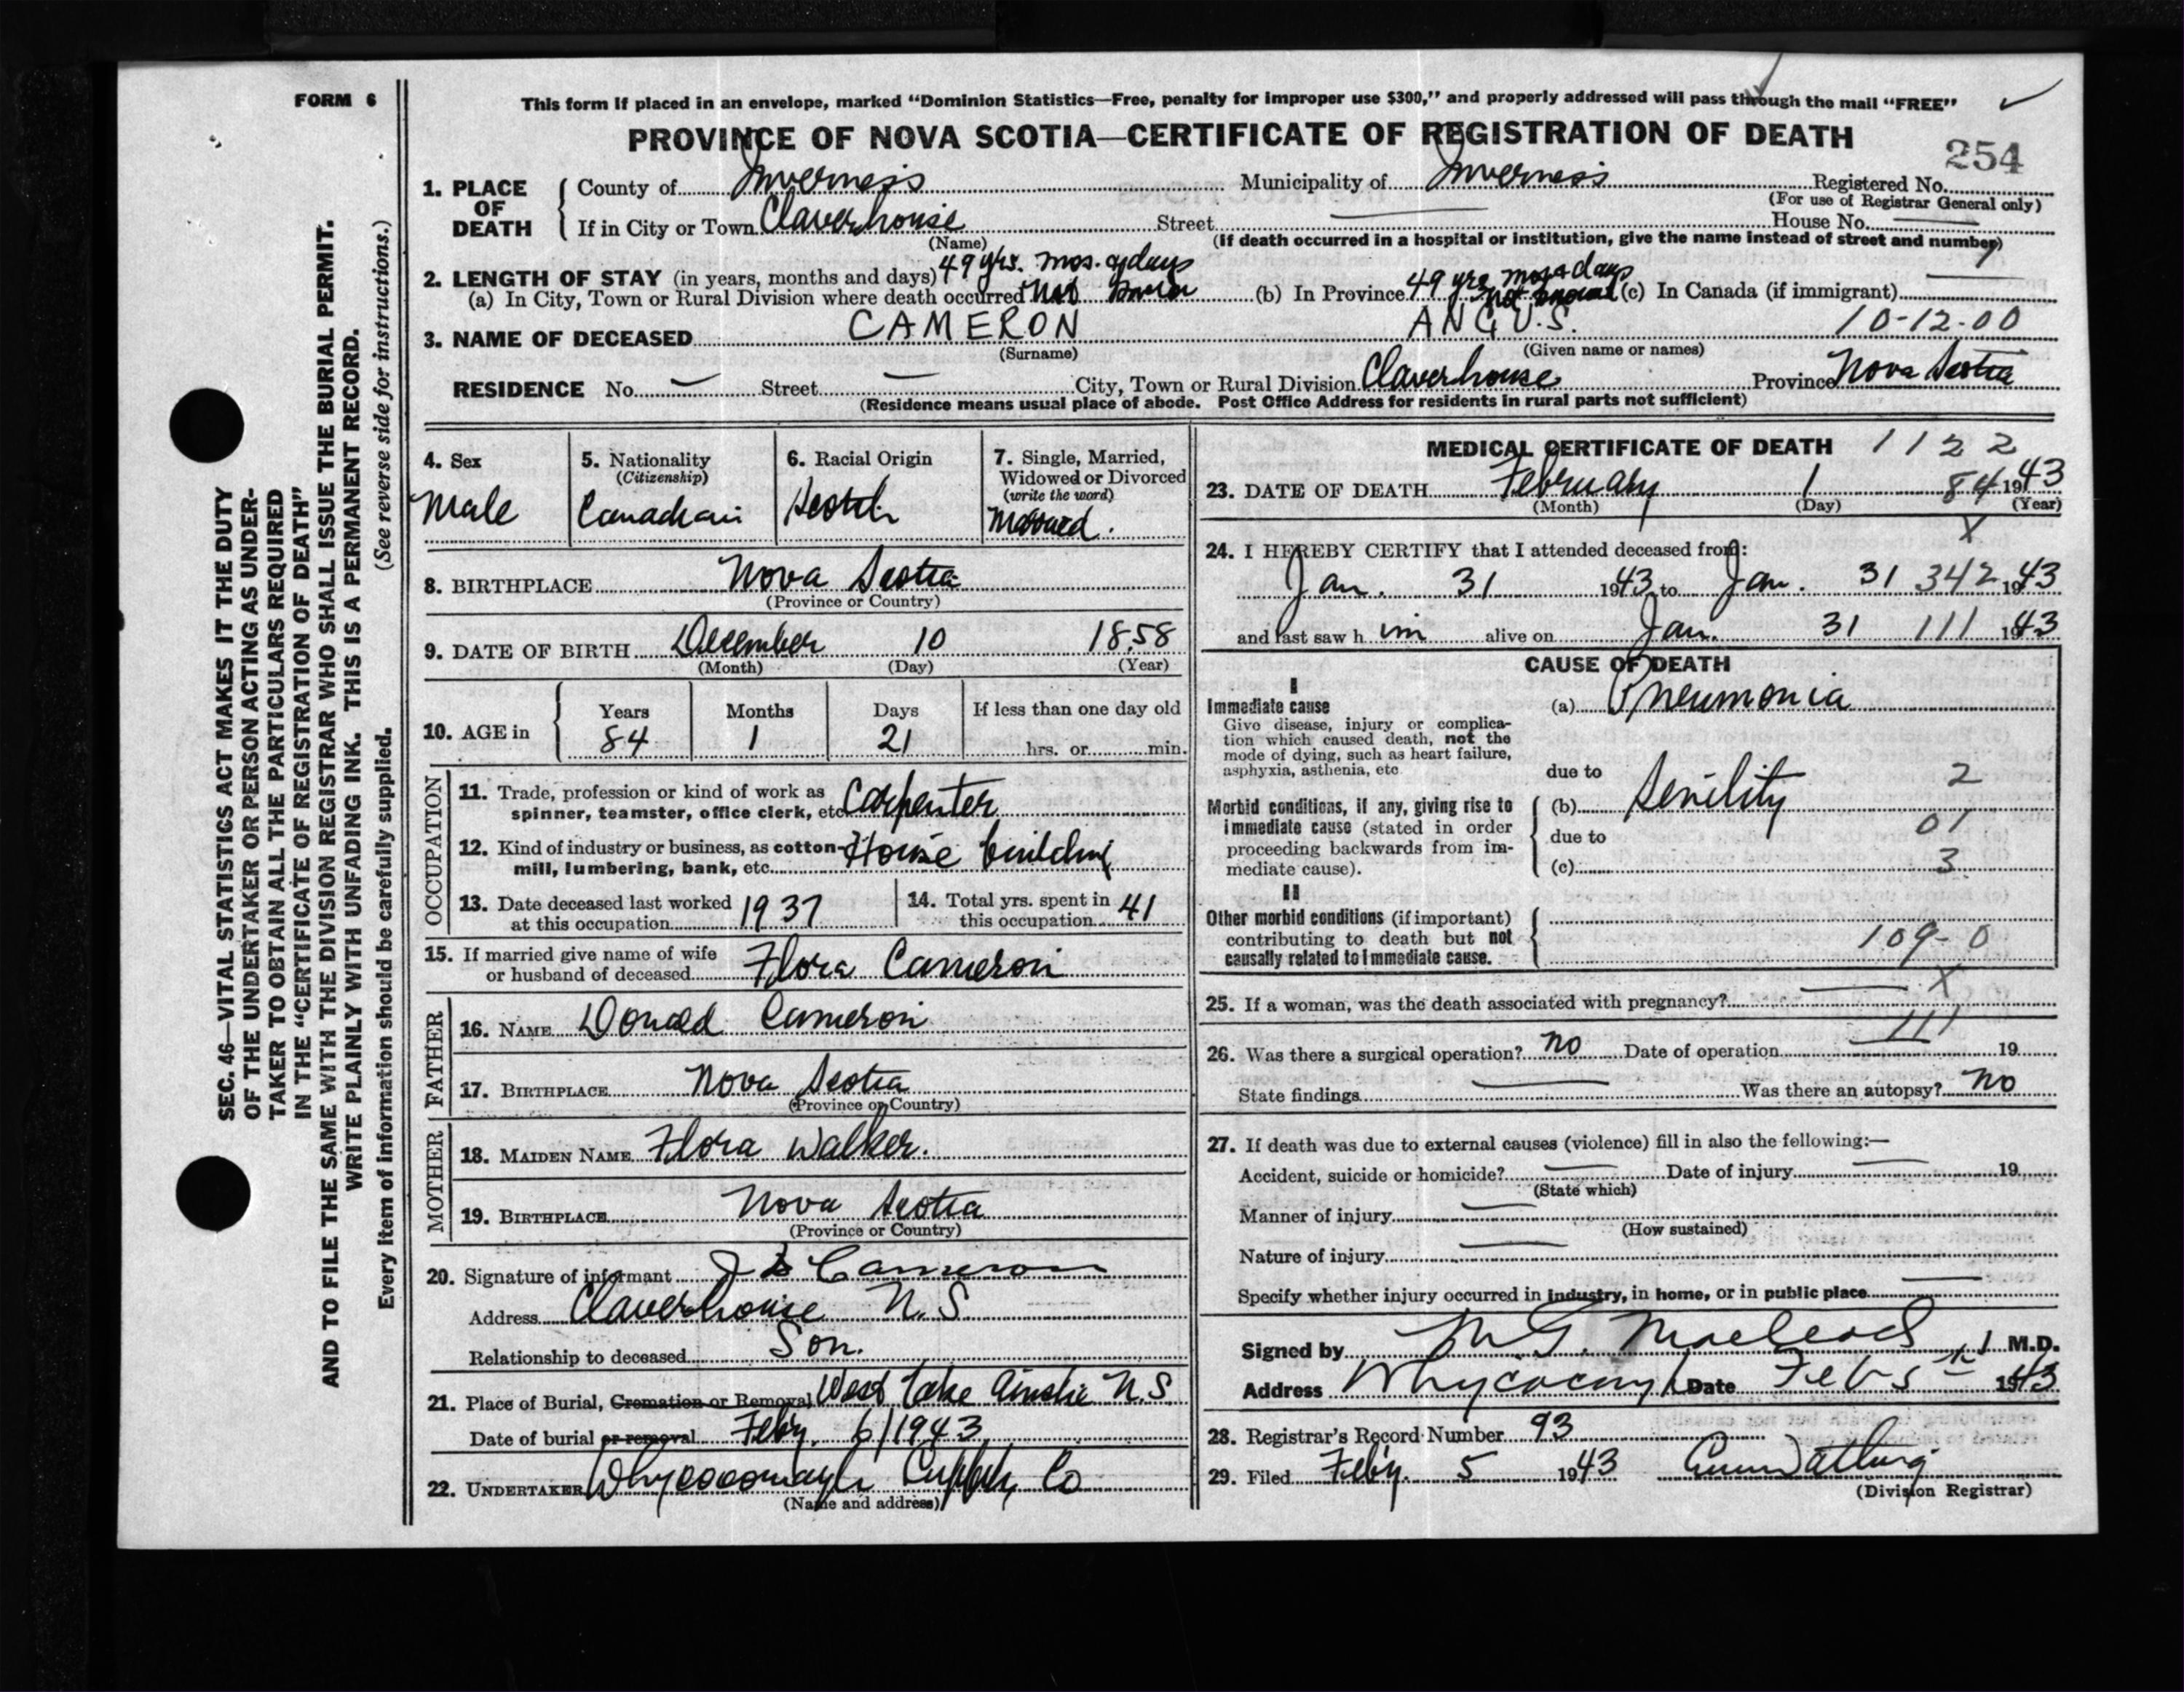 FORM 6
This form if placed in an envelope, marked "Dominion Statistics—Free, penalty for improper use $300," and properly addressed will pass through the mail "FREE"
PROVINCE OF NOVA SCOTIA—CERTIFICATE OF REGISTRATION OF DEATH
254
1. PLACE OF DEATH
County of Inverness Municipality of Inverness Registered No.
(For use of Registrar General only)
If in City or Town Claverhouse Street House No.
(Name) (If death occurred in a hospital or institution, give the name instead of street and number)
2. LENGTH OF STAY (in years, months and days) 49 yrs. mos. & days
(a) In City, Town or Rural Division where death occurred not known (b) In Province 49 yrs mos & days not known (c) In Canada (if immigrant)
3. NAME OF DECEASED CAMERON ANGUS. 10-12-00
(Surname) (Given name or names)
RESIDENCE No. Street City, Town or Rural Division Claverhouse Province Nova Scotia
(Residence means usual place of abode. Post Office Address for residents in rural parts not sufficient)
4. Sex
Male
5. Nationality
(Citizenship)
Canadian
6. Racial Origin
Scotch
7. Single, Married, Widowed or Divorced
(write the word)
Married.
8. BIRTHPLACE Nova Scotia
(Province or Country)
9. DATE OF BIRTH December 10 1858
(Month) (Day) (Year)
10. AGE in Years Months Days If less than one day old
84 1 21 hrs. or min.
OCCUPATION
11. Trade, profession or kind of work as spinner, teamster, office clerk, etc. Carpenter
12. Kind of industry or business, as cotton-mill, lumbering, bank, etc. House building
13. Date deceased last worked at this occupation 1937
14. Total yrs. spent in this occupation 41
15. If married give name of wife or husband of deceased Flora Cameron
FATHER
16. NAME Donald Cameron
17. BIRTHPLACE Nova Scotia
(Province or Country)
MOTHER
18. MAIDEN NAME Flora Walker.
19. BIRTHPLACE Nova Scotia
(Province or Country)
20. Signature of informant J Cameron
Address Claverhouse N.S
Relationship to deceased Son.
21. Place of Burial, Cremation or Removal West Lake Ainslie N.S.
Date of burial or removal Feby. 6/1943
22. UNDERTAKER Whycocomagh Supply Co
(Name and address)
MEDICAL CERTIFICATE OF DEATH 1122
23. DATE OF DEATH February 1 84 1943
(Month) (Day) (Year)
X
24. I HEREBY CERTIFY that I attended deceased from:
Jan. 31 1943 to Jan. 31 342 1943
and last saw him alive on Jan. 31 111 1943
CAUSE OF DEATH
I
Immediate cause
Give disease, injury or complication which caused death, not the mode of dying, such as heart failure, asphyxia, asthenia, etc
(a) Pneumonia
due to 2
Morbid conditions, if any, giving rise to immediate cause (stated in order proceeding backwards from immediate cause).
(b) Senility
due to 01
(c) 3
II
Other morbid conditions (if important) contributing to death but not causally related to immediate cause.
109-0
X
25. If a woman, was the death associated with pregnancy?
111
26. Was there a surgical operation? No Date of operation 19
State findings Was there an autopsy? No
27. If death was due to external causes (violence) fill in also the following:—
Accident, suicide or homicide? Date of injury 19
(State which)
Manner of injury
(How sustained)
Nature of injury
Specify whether injury occurred in industry, in home, or in public place
Signed by MacLeod M.D.
Address Whycocomagh Date Feb 5th 1943
28. Registrar's Record Number 93
29. Filed Feby. 5 1943
(Division Registrar)
SEC. 46—VITAL STATISTICS ACT MAKES IT THE DUTY
OF THE UNDERTAKER OR PERSON ACTING AS UNDER-
TAKER TO OBTAIN ALL THE PARTICULARS REQUIRED
IN THE "CERTIFICATE OF REGISTRATION OF DEATH"
AND TO FILE THE SAME WITH THE DIVISION REGISTRAR WHO SHALL ISSUE THE BURIAL PERMIT.
WRITE PLAINLY WITH UNFADING INK. THIS IS A PERMANENT RECORD.
Every item of information should be carefully supplied. (See reverse side for instructions.)